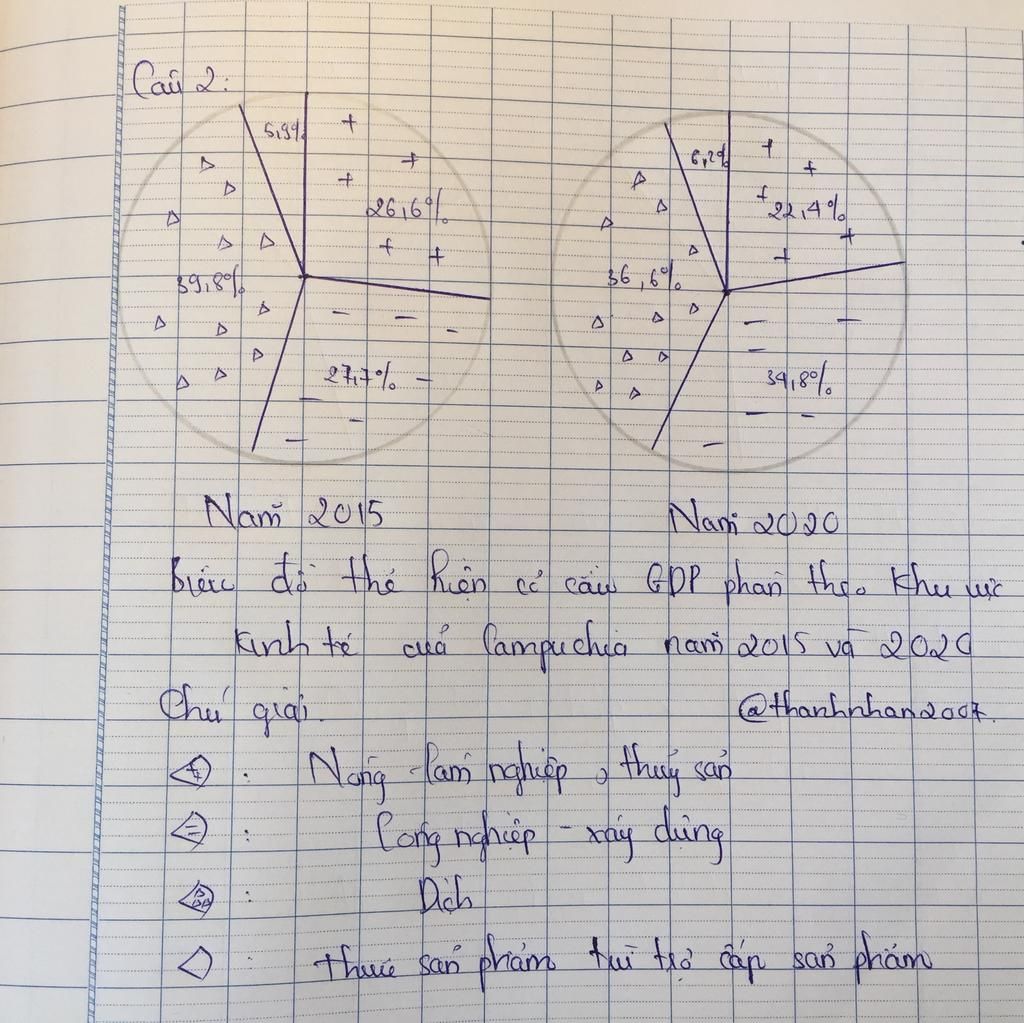 Câu 2:
5,9%
26,6%
39,8%
27,7%
6,2%
22,4%
36,6%
34,8%
Năm 2015
Năm 2020
Biểu đồ thể hiện cơ cấu GDP phân theo khu vực
kinh tế của Campuchia năm 2015 và 2020
Chú giải.
@thanhnhan2007.
: Nông - lâm nghiệp, thuỷ sản
: Công nghiệp - xây dựng
: Dịch
: thuế sản phẩm trừ trợ cấp sản phẩm